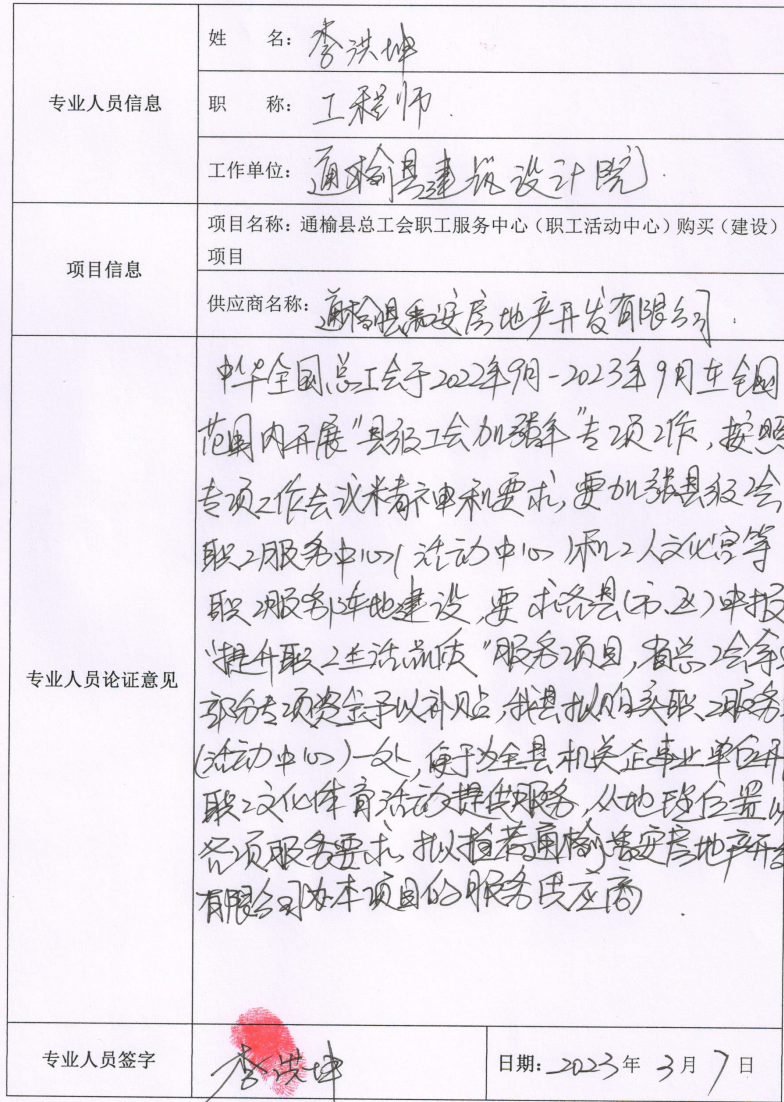 姓 名: 李洪坤
专业人员信息
职 称: 工程师
工作单位: 通榆县建筑设计院
项目名称: 通榆县总工会职工服务中心（职工活动中心）购买（建设）
项目
项目信息
供应商名称: 通榆县安房地产开发有限公司.
中华全国总工会于2022年9月-2023年9月在全国
范围内开展"县级工会加强年"专项工作, 按照
专项工作会议精神和要求, 要加强县级工会
职工服务中心(活动中心)和工人文化宫等
职工服务阵地建设 要求各县(市、区)申报
"提升职工生活品质"服务项目, 省总工会
部分专项资金予以补贴, 我县拟购买职工服务
(活动中心)一处, 便于为全县机关企事业单位开
职工文化体育活动提供服务, 从地理位置
各项服务要求, 拟推荐通榆县安房地产开发
有限公司为本项目的服务供应商
专业人员论证意见
专业人员签字
李洪坤
日期: 2023年 3月 7日